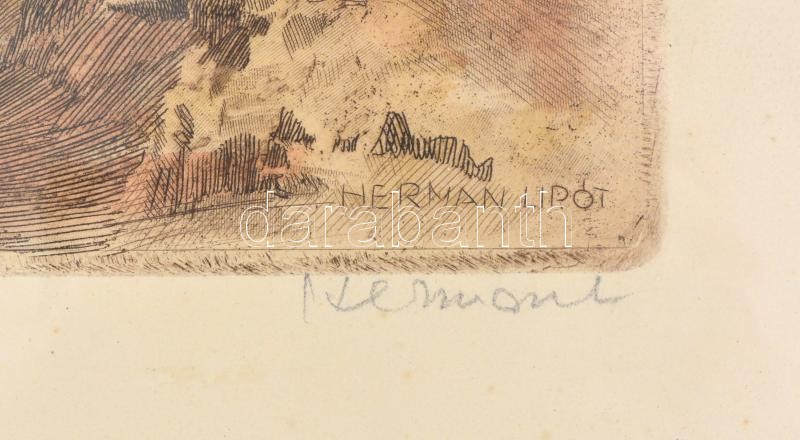 HERMAN LIPÓT
darabanth
Herman L